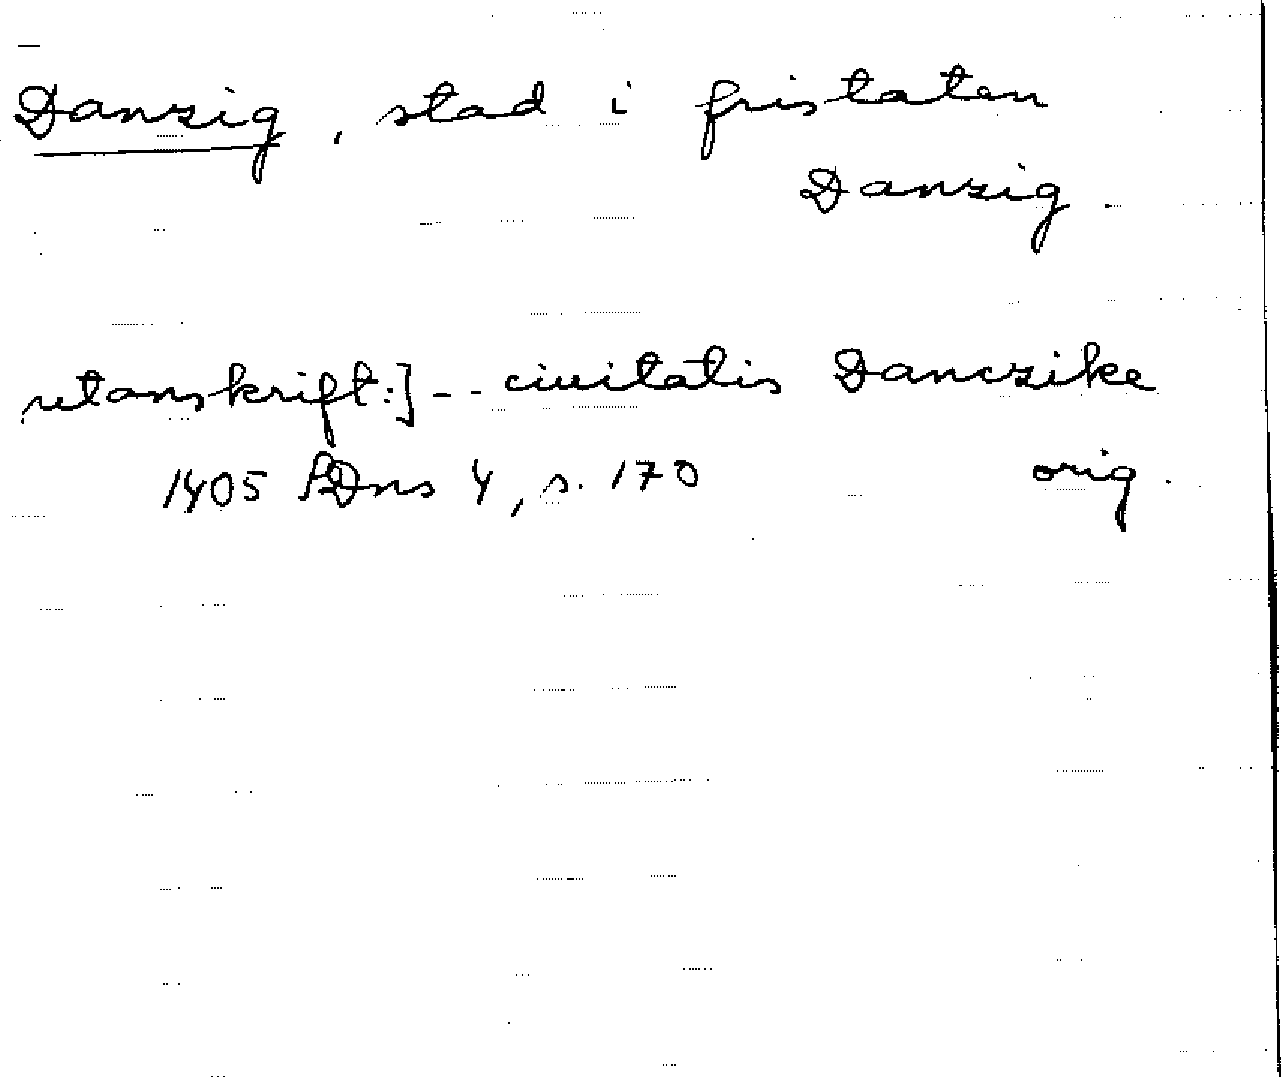 Danzig, stad i fristaten
Danzig.
utanskrift:] -- ciuitatis Danczike
1405 SDns 4, s. 170 orig.